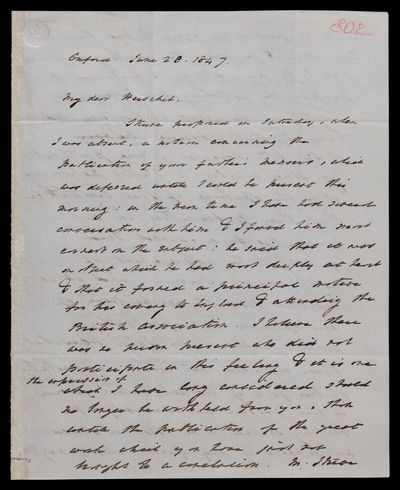 802
Oxford June 28. 1847
My dear Herschel.
Struve proposed on Saturday, when
I was absent, a motion concerning the
publication of your father's memoirs, which
was deferred until I could be present this
morning: in the mean time I have had several
conversations with him & I found him most
earnest on the subject: he said that it was
an object which he had most deeply at heart
& that it formed a principal motive
for his coming to England & attending the
British Association. I believe there
was no person present who did not
participate in this feeling & it is one
the expression of
which I have long considered should
no longer be withheld from you, than
until the publication of the great
work which you have just not
brought to a conclusion. M. Struve